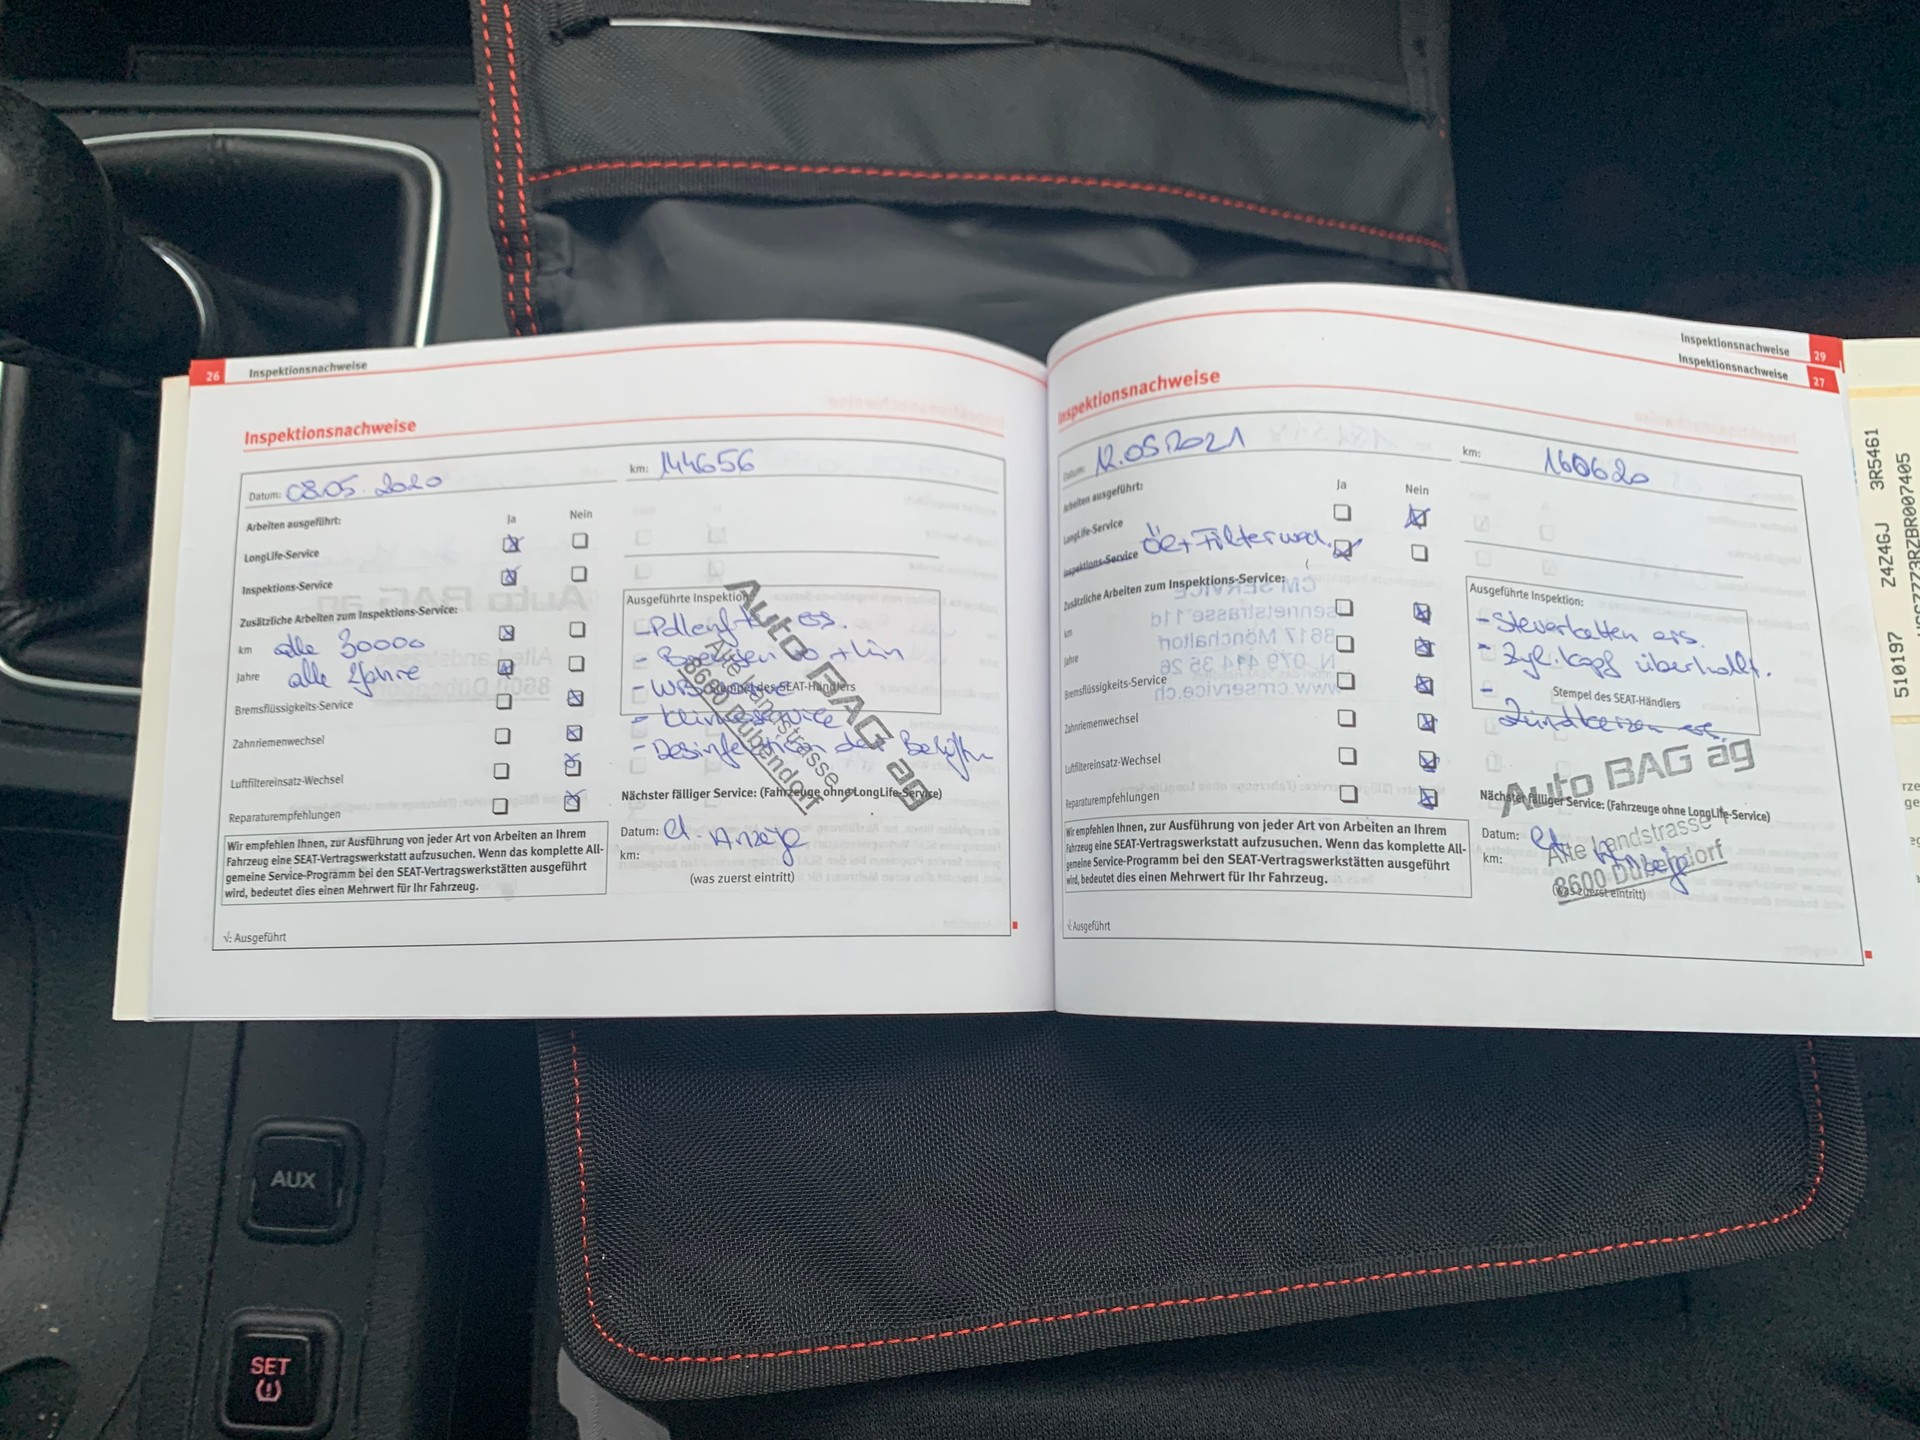 26 Inspektionsnachweise
Inspektionsnachweise
Datum: 08.05.2020
km: 144656
Arbeiten ausgeführt:
Ja Nein
LongLife-Service
Inspektions-Service
Zusätzliche Arbeiten zum Inspektions-Service:
km alle 30000
Jahre alle 2Jahre
Bremsflüssigkeits-Service
Zahnriemenwechsel
Luftfiltereinsatz-Wechsel
Reparaturempfehlungen
Wir empfehlen Ihnen, zur Ausführung von jeder Art von Arbeiten an Ihrem
Fahrzeug eine SEAT-Vertragswerkstatt aufzusuchen. Wenn das komplette All-
gemeine Service-Programm bei den SEAT-Vertragswerkstätten ausgeführt
wird, bedeutet dies einen Mehrwert für Ihr Fahrzeug.
√: Ausgeführt
Ausgeführte Inspektion:
ers.
Stempel des SEAT-Händlers
- Desinfektion der
Auto BAG ag
Alte Landstrasse 1
8600 Dübendorf
Nächster fälliger Service: (Fahrzeuge ohne LongLife-Service)
Datum: el. Anzeige
km:
(was zuerst eintritt)
Inspektionsnachweise 29
Inspektionsnachweise 27
Inspektionsnachweise
Datum: 12.05.2021
km: 160620
Arbeiten ausgeführt:
Ja Nein
LongLife-Service
Inspektions-Service Öl + Filter
Zusätzliche Arbeiten zum Inspektions-Service:
km
Jahre
Bremsflüssigkeits-Service
Zahnriemenwechsel
Luftfiltereinsatz-Wechsel
Reparaturempfehlungen
Wir empfehlen Ihnen, zur Ausführung von jeder Art von Arbeiten an Ihrem
Fahrzeug eine SEAT-Vertragswerkstatt aufzusuchen. Wenn das komplette All-
gemeine Service-Programm bei den SEAT-Vertragswerkstätten ausgeführt
wird, bedeutet dies einen Mehrwert für Ihr Fahrzeug.
√: Ausgeführt
Ausgeführte Inspektion:
- Steuerketten ers.
- Zyl. Kopf überhollt.
-
Stempel des SEAT-Händlers
Zündkerzen ers.
Auto BAG ag
Alte Landstrasse
8600 Dübendorf
Nächster fälliger Service: (Fahrzeuge ohne LongLife-Service)
Datum:
km:
(was zuerst eintritt)
510197 Z4Z4GJ 3R5461
AUX
SET